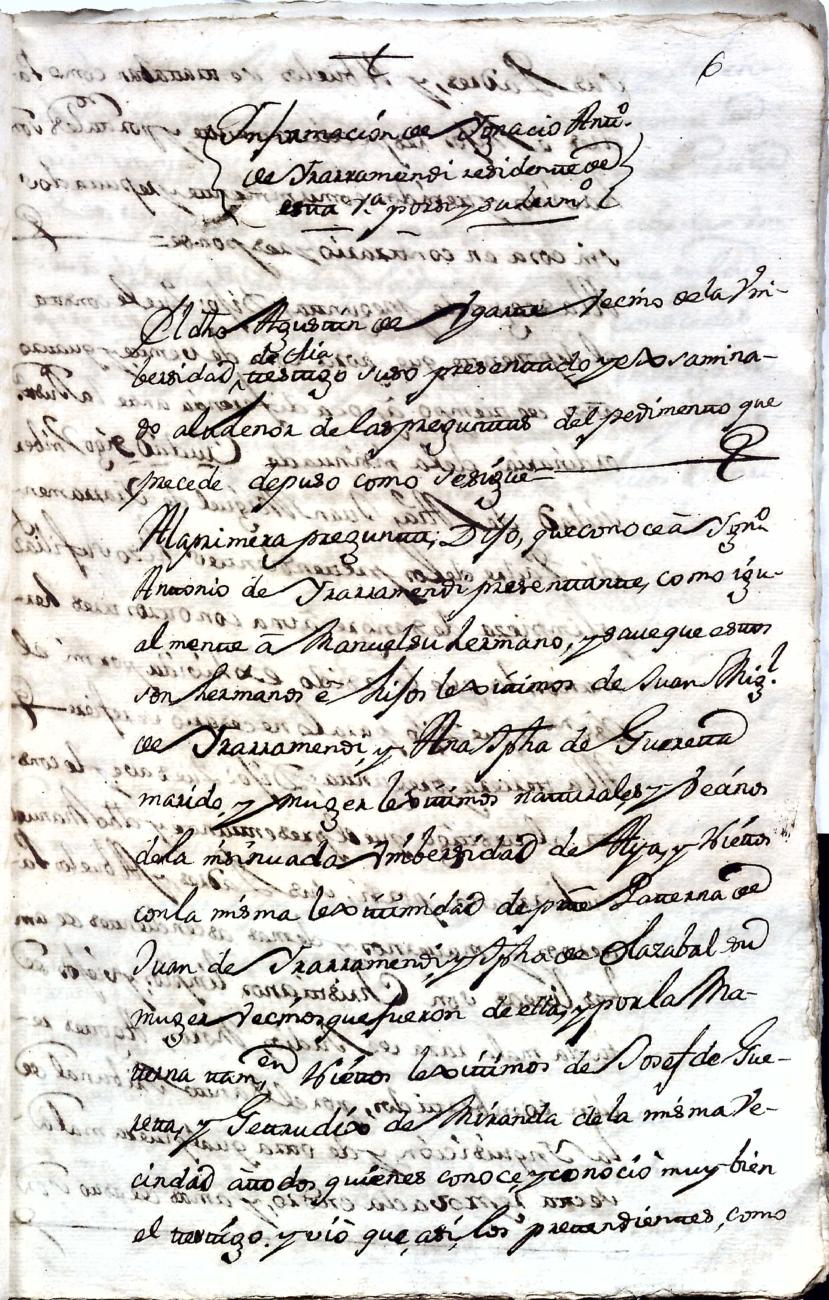 6
Informacion de Ygnacio Anttº.
de Yrarramendi residentte de
estta Vª. por si y su hermº.
El dho Agusttin de Ygartte Vecino de la Vni-
bersidad
de Aia
ttesttigo suso presenttado y exsamina-
do al ttenor de las pregunttas del pedimento que
precede depuso como se sigue
A la primera preguntta, Dijo, que conoce â Ygnº
Antonio de Yrarramendi presenttantte, como igu-
almentte â Manuel su hermano, y save que esttos
son hermanos e hijos lexittimos de Juan Migl.
de Yrarramendi, y Ana Jpha de Gueretta
marido, y muger lexittimos natturales, y Vecinos
de la insinuada Vnibersidad de Aya, y Niettos
con la misma lexittimidad de ptte Patterna de
Juan de Yrarramendi y Jpha de Olazabal su
muger Vecinos que fueron de ella, y por la Ma-
tterna ttamen Niettos lexittimos de Josef de Gue-
retta, y Getrudix de Miranda de la misma Ve-
cindad a ttodos quienes conoce, y conociò muy bien
el ttesttigo. y viò que, asi, los prettendienttes, como